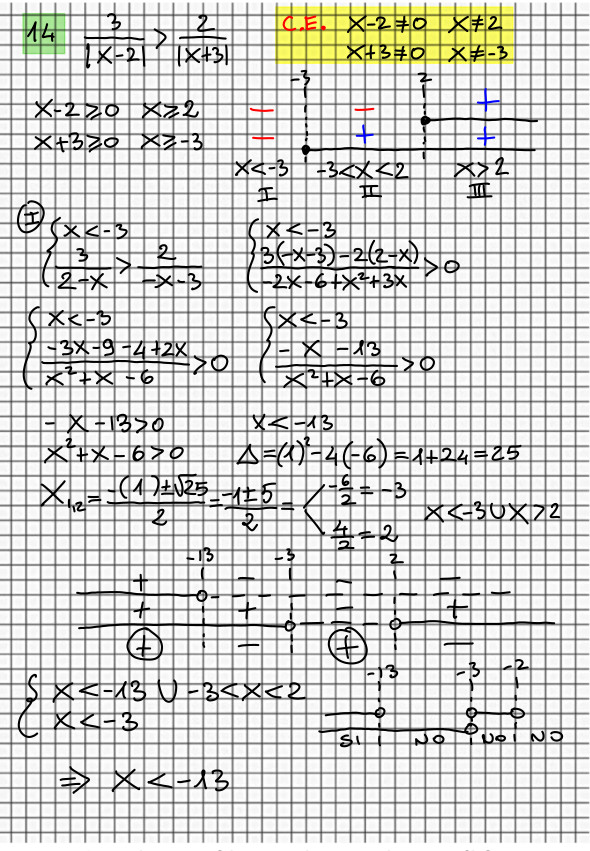 14 3/|x-2| > 2/|x+3| C.E. x-2≠0 x≠2
x+3≠0 x≠-3
-3 2
x-2⩾0 x⩾2 - - +
x+3⩾0 x⩾-3 - + +
x<-3 -3<x<2 x>2
I II III
I { x<-3 { x<-3
3/(2-x) > 2/(-x-3) (3(-x-3)-2(2-x))/(-2x-6+x²+3x) > 0
{ x<-3 { x<-3
(-3x-9-4+2x)/(x²+x-6) > 0 (-x-13)/(x²+x-6) > 0
-x-13>0 x<-13
x²+x-6>0 Δ=(1)²-4(-6)=1+24=25
x1,2 = (-(1)±√25)/2 = (-1±5)/2 = -6/2 = -3
4/2 = 2 x<-3 ∪ x>2
-13 -3 2
+ - - -
+ + - +
+ - + -
{ x<-13 ∪ -3<x<2 -13 -3 -2
x<-3
SI NO NO NO
⇒ x<-13